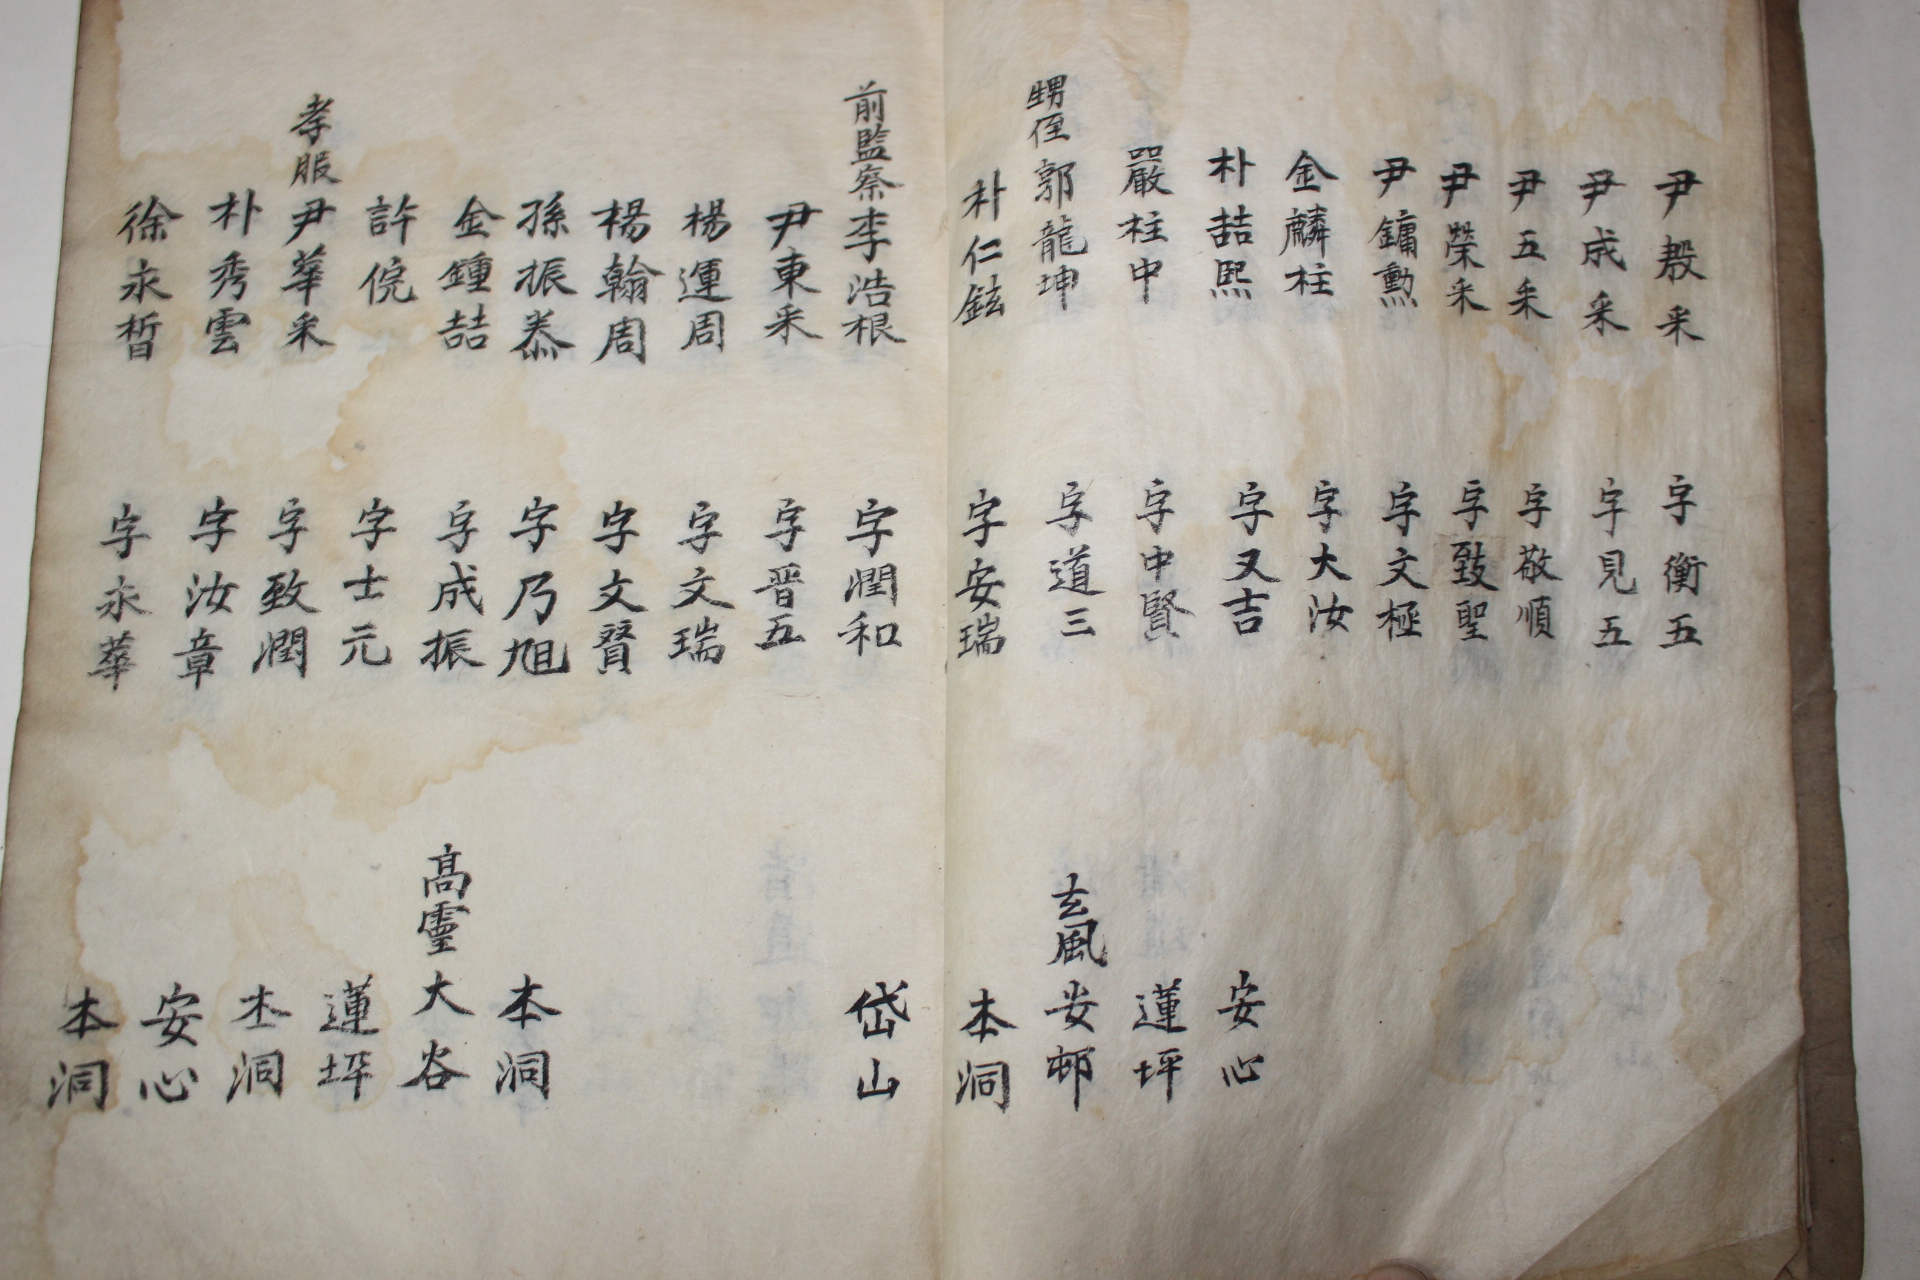 尹殷采 字衡五
尹成采 字見五
尹五采 字敬順
尹榮采 字致聖
尹鏞勲 字文極
金麟柱 字大汝
朴喆熙 字又吉 安心
嚴柱中 字中賢 蓮坪
甥侄 郭龍坤 字道三 玄風 安邨
朴仁鉉 字安瑞 本洞
前監察 李浩根 字潤和 岱山
尹東采 字晋五
楊運周 字文瑞
楊翰周 字文賢
孫振泰 字乃旭 本洞
金鍾喆 字成振 高靈 大谷
許傥 字士元 蓮坪
孝服 尹華采 字致潤 本洞
朴秀雲 字汝章 安心
徐永晳 字永華 本洞